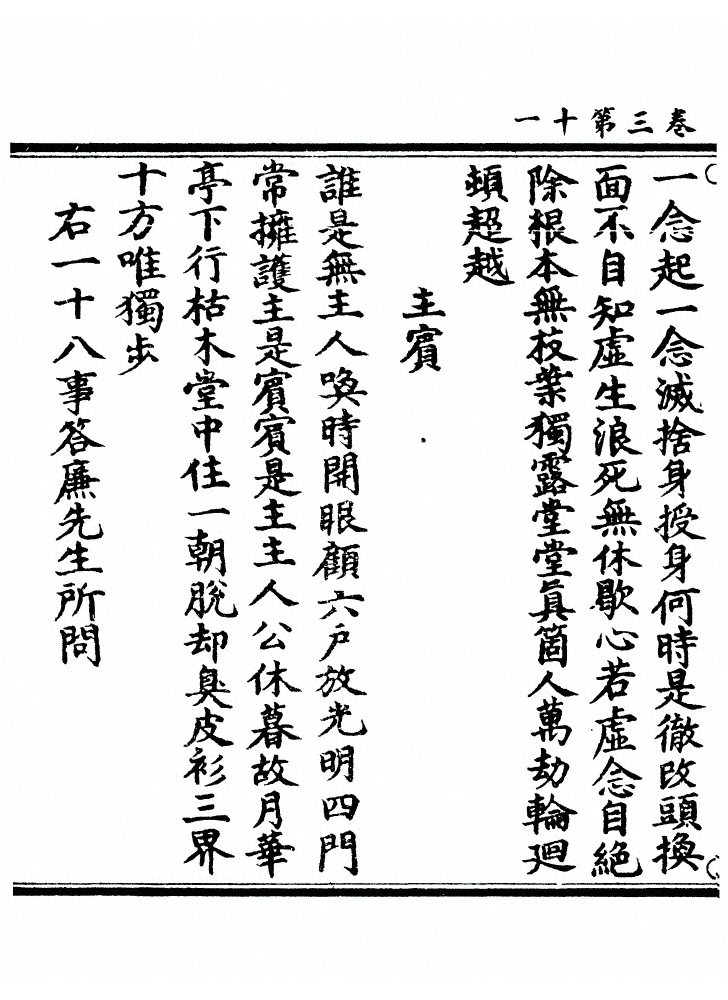 卷三第十一
一念起一念滅捨身授身何時是徹改頭換
面不自知虛生浪死無休歇心若虛念自絕
除根本無枝葉獨露堂堂真箇人萬劫輪廻
頓超越
主賓
誰是無主人喚時開眼顧六戶放光明四門
常擁護主是賓賓是主主人公休暮故月華
亭下行枯木堂中住一朝脫却臭皮衫三界
十方唯獨步
右一十八事答廉先生所問